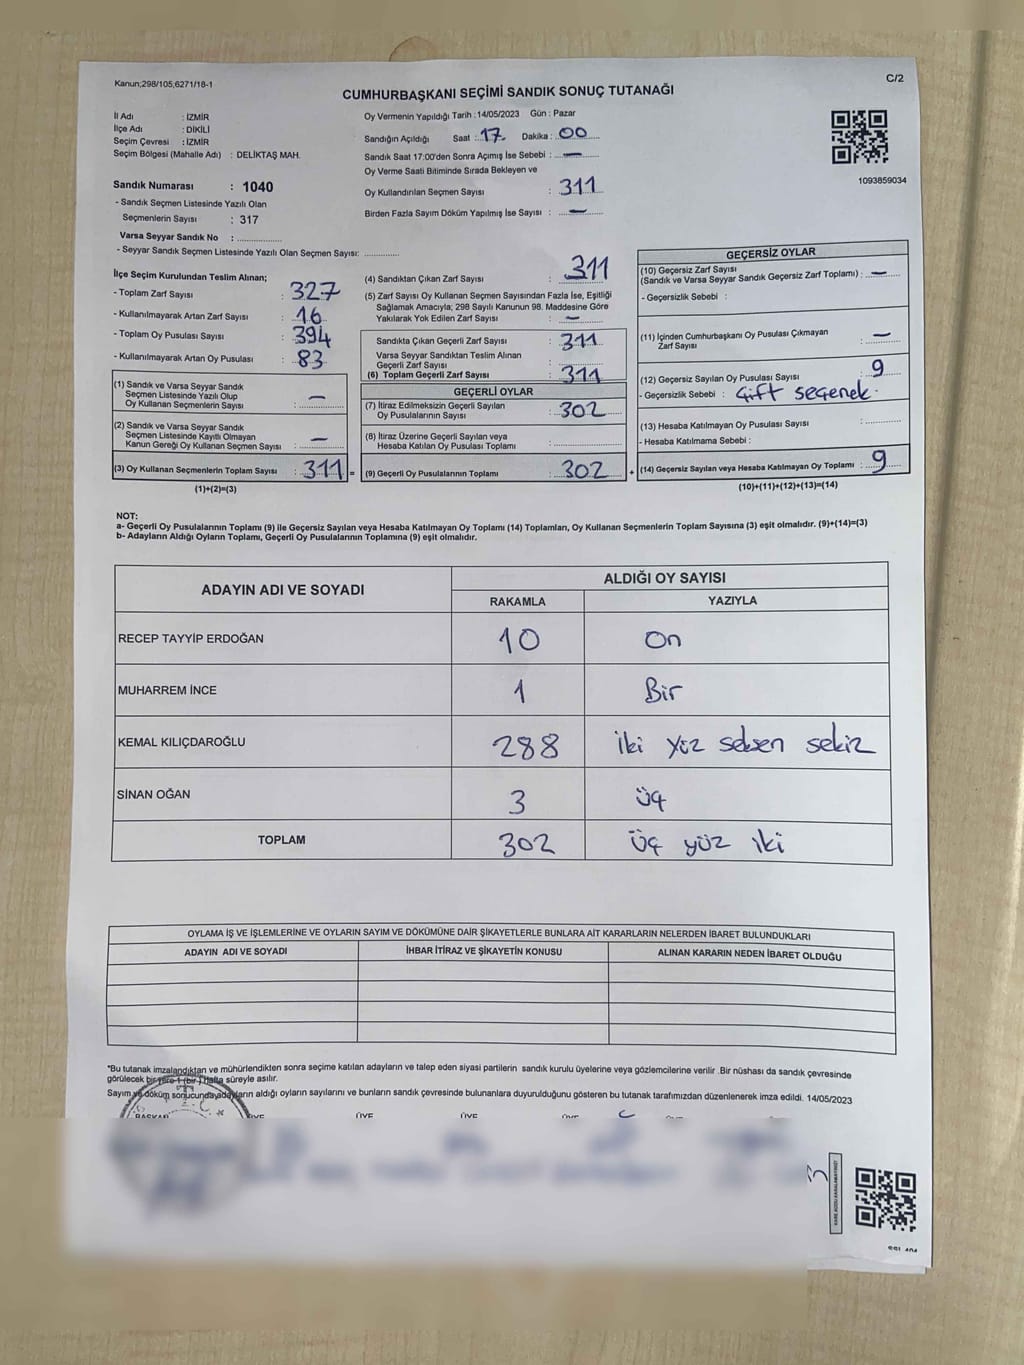 Kanun;298/105,6271/18-1
C/2
CUMHURBAŞKANI SEÇİMİ SANDIK SONUÇ TUTANAĞI
İl Adı : İZMİR
İlçe Adı : DİKİLİ
Seçim Çevresi : İZMİR
Seçim Bölgesi (Mahalle Adı) : DELİKTAŞ MAH.
Sandık Numarası : 1040
- Sandık Seçmen Listesinde Yazılı Olan
Seçmenlerin Sayısı : 317
Varsa Seyyar Sandık No : ..............
- Seyyar Sandık Seçmen Listesinde Yazılı Olan Seçmen Sayısı: ............
Oy Vermenin Yapıldığı Tarih : 14/05/2023 Gün : Pazar
Sandığın Açıldığı Saat : 17 Dakika : 00
Sandık Saat 17:00'den Sonra Açımış İse Sebebi : —
Oy Verme Saati Bitiminde Sırada Bekleyen ve
Oy Kullandırılan Seçmen Sayısı : 311
Birden Fazla Sayım Döküm Yapılmış İse Sayısı : —
1093859034
İlçe Seçim Kurulundan Teslim Alınan;
- Toplam Zarf Sayısı : 327
- Kullanılmayarak Artan Zarf Sayısı : 16
- Toplam Oy Pusulası Sayısı : 394
- Kullanılmayarak Artan Oy Pusulası : 83
(1) Sandık ve Varsa Seyyar Sandık
Seçmen Listesinde Yazılı Olup
Oy Kullanan Seçmenlerin Sayısı : —
(2) Sandık ve Varsa Seyyar Sandık
Seçmen Listesinde Kayıtlı Olmayan
Kanun Gereği Oy Kullanan Seçmen Sayısı : —
(3) Oy Kullanan Seçmenlerin Toplam Sayısı : 311 =
(1)+(2)=(3)
(4) Sandıktan Çıkan Zarf Sayısı : 311
(5) Zarf Sayısı Oy Kullanan Seçmen Sayısından Fazla İse, Eşitliği
Sağlamak Amacıyla; 298 Sayılı Kanunun 98. Maddesine Göre
Yakılarak Yok Edilen Zarf Sayısı : —
Sandıkta Çıkan Geçerli Zarf Sayısı : 311
Varsa Seyyar Sandıktan Teslim Alınan
Geçerli Zarf Sayısı :
(6) Toplam Geçerli Zarf Sayısı : 311
GEÇERLİ OYLAR
(7) İtiraz Edilmeksizin Geçerli Sayılan
Oy Pusulalarının Sayısı : 302
(8) İtiraz Üzerine Geçerli Sayılan veya
Hesaba Katılan Oy Pusulası Toplamı :
(9) Geçerli Oy Pusulalarının Toplamı : 302 +
GEÇERSİZ OYLAR
(10) Geçersiz Zarf Sayısı
(Sandık ve Varsa Seyyar Sandık Geçersiz Zarf Toplamı) : —
- Geçersizlik Sebebi :
(11) İçinden Cumhurbaşkanı Oy Pusulası Çıkmayan
Zarf Sayısı : —
(12) Geçersiz Sayılan Oy Pusulası Sayısı : 9
- Geçersizlik Sebebi : Çift seçenek.
(13) Hesaba Katılmayan Oy Pusulası Sayısı :
- Hesaba Katılmama Sebebi :
(14) Geçersiz Sayılan veya Hesaba Katılmayan Oy Toplamı : 9
(10)+(11)+(12)+(13)=(14)
NOT:
a- Geçerli Oy Pusulalarının Toplamı (9) ile Geçersiz Sayılan veya Hesaba Katılmayan Oy Toplamı (14) Toplamları, Oy Kullanan Seçmenlerin Toplam Sayısına (3) eşit olmalıdır. (9)+(14)=(3)
b- Adayların Aldığı Oyların Toplamı, Geçerli Oy Pusulalarının Toplamına (9) eşit olmalıdır.
ADAYIN ADI VE SOYADI
ALDIĞI OY SAYISI
RAKAMLA YAZIYLA
RECEP TAYYİP ERDOĞAN 10 On
MUHARREM İNCE 1 Bir
KEMAL KILIÇDAROĞLU 288 iki yüz seksen sekiz
SİNAN OĞAN 3 üç
TOPLAM 302 üç yüz iki
OYLAMA İŞ VE İŞLEMLERİNE VE OYLARIN SAYIM VE DÖKÜMÜNE DAİR ŞİKAYETLERLE BUNLARA AİT KARARLARIN NELERDEN İBARET BULUNDUKLARI
ADAYIN ADI VE SOYADI İHBAR İTİRAZ VE ŞİKAYETİN KONUSU ALINAN KARARIN NEDEN İBARET OLDUĞU
*Bu tutanak imzalandıktan ve mühürlendikten sonra seçime katılan adayların ve talep eden siyasi partilerin sandık kurulu üyelerine veya gözlemcilerine verilir .Bir nüshası da sandık çevresinde
görülecek bir yere 1 (bir ) Hafta süreyle asılır.
Sayım ve döküm sonucunda adayların aldığı oyların sayılarını ve bunların sandık çevresinde bulunanlara duyurulduğunu gösteren bu tutanak tarafımızdan düzenlenerek imza edildi. 14/05/2023
BAŞKAN ÜYE ÜYE ÜYE